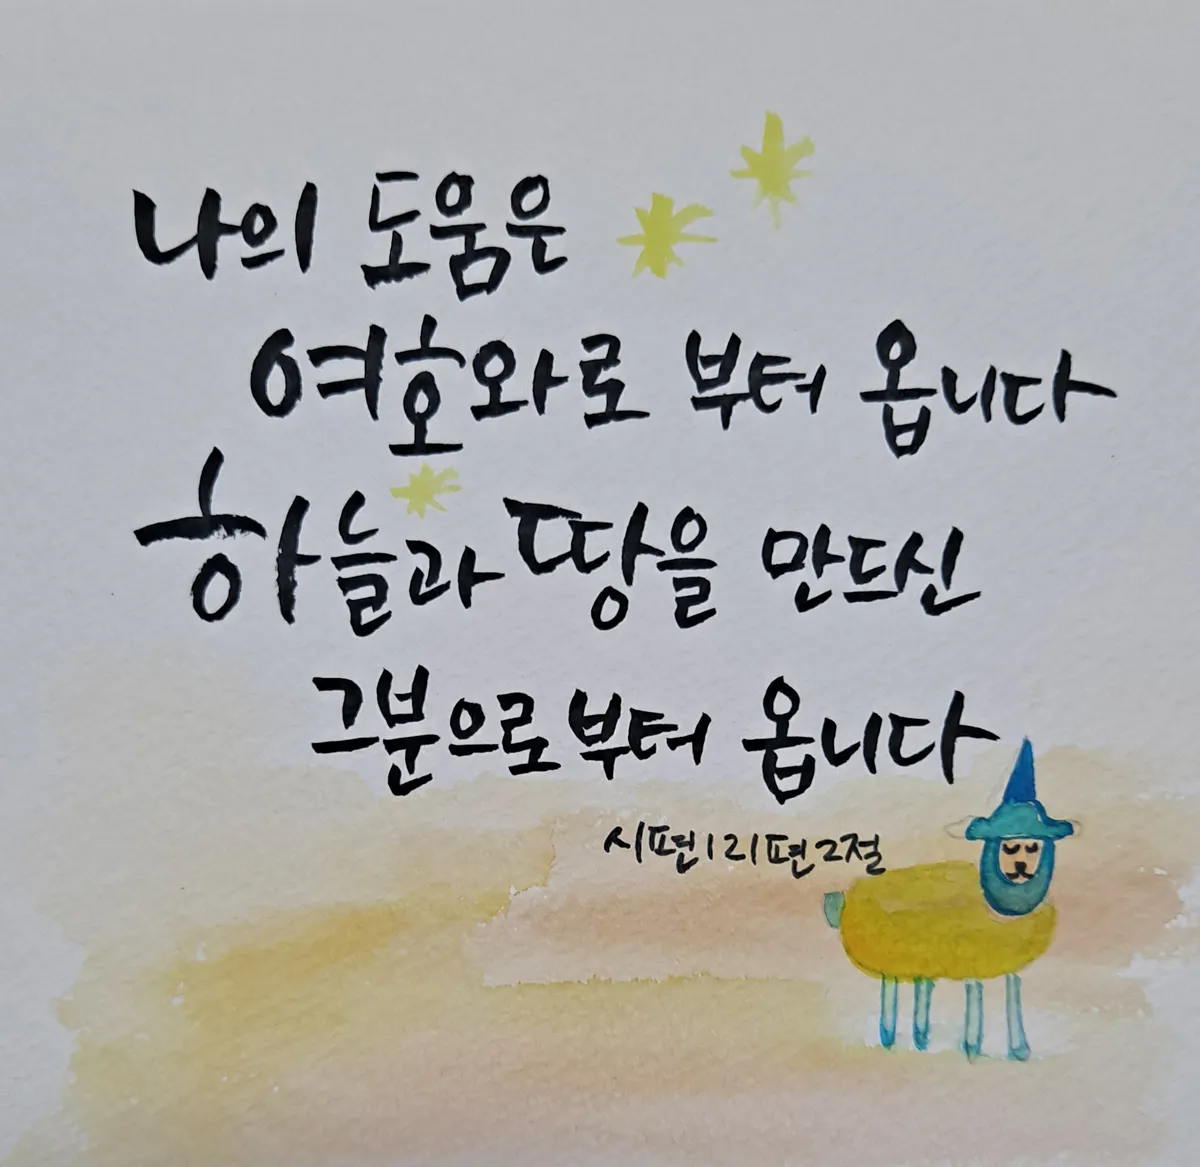 나의 도움은
여호와로 부터 옵니다
하늘과 땅을 만드신
그분으로부터 옵니다
시편121편2절